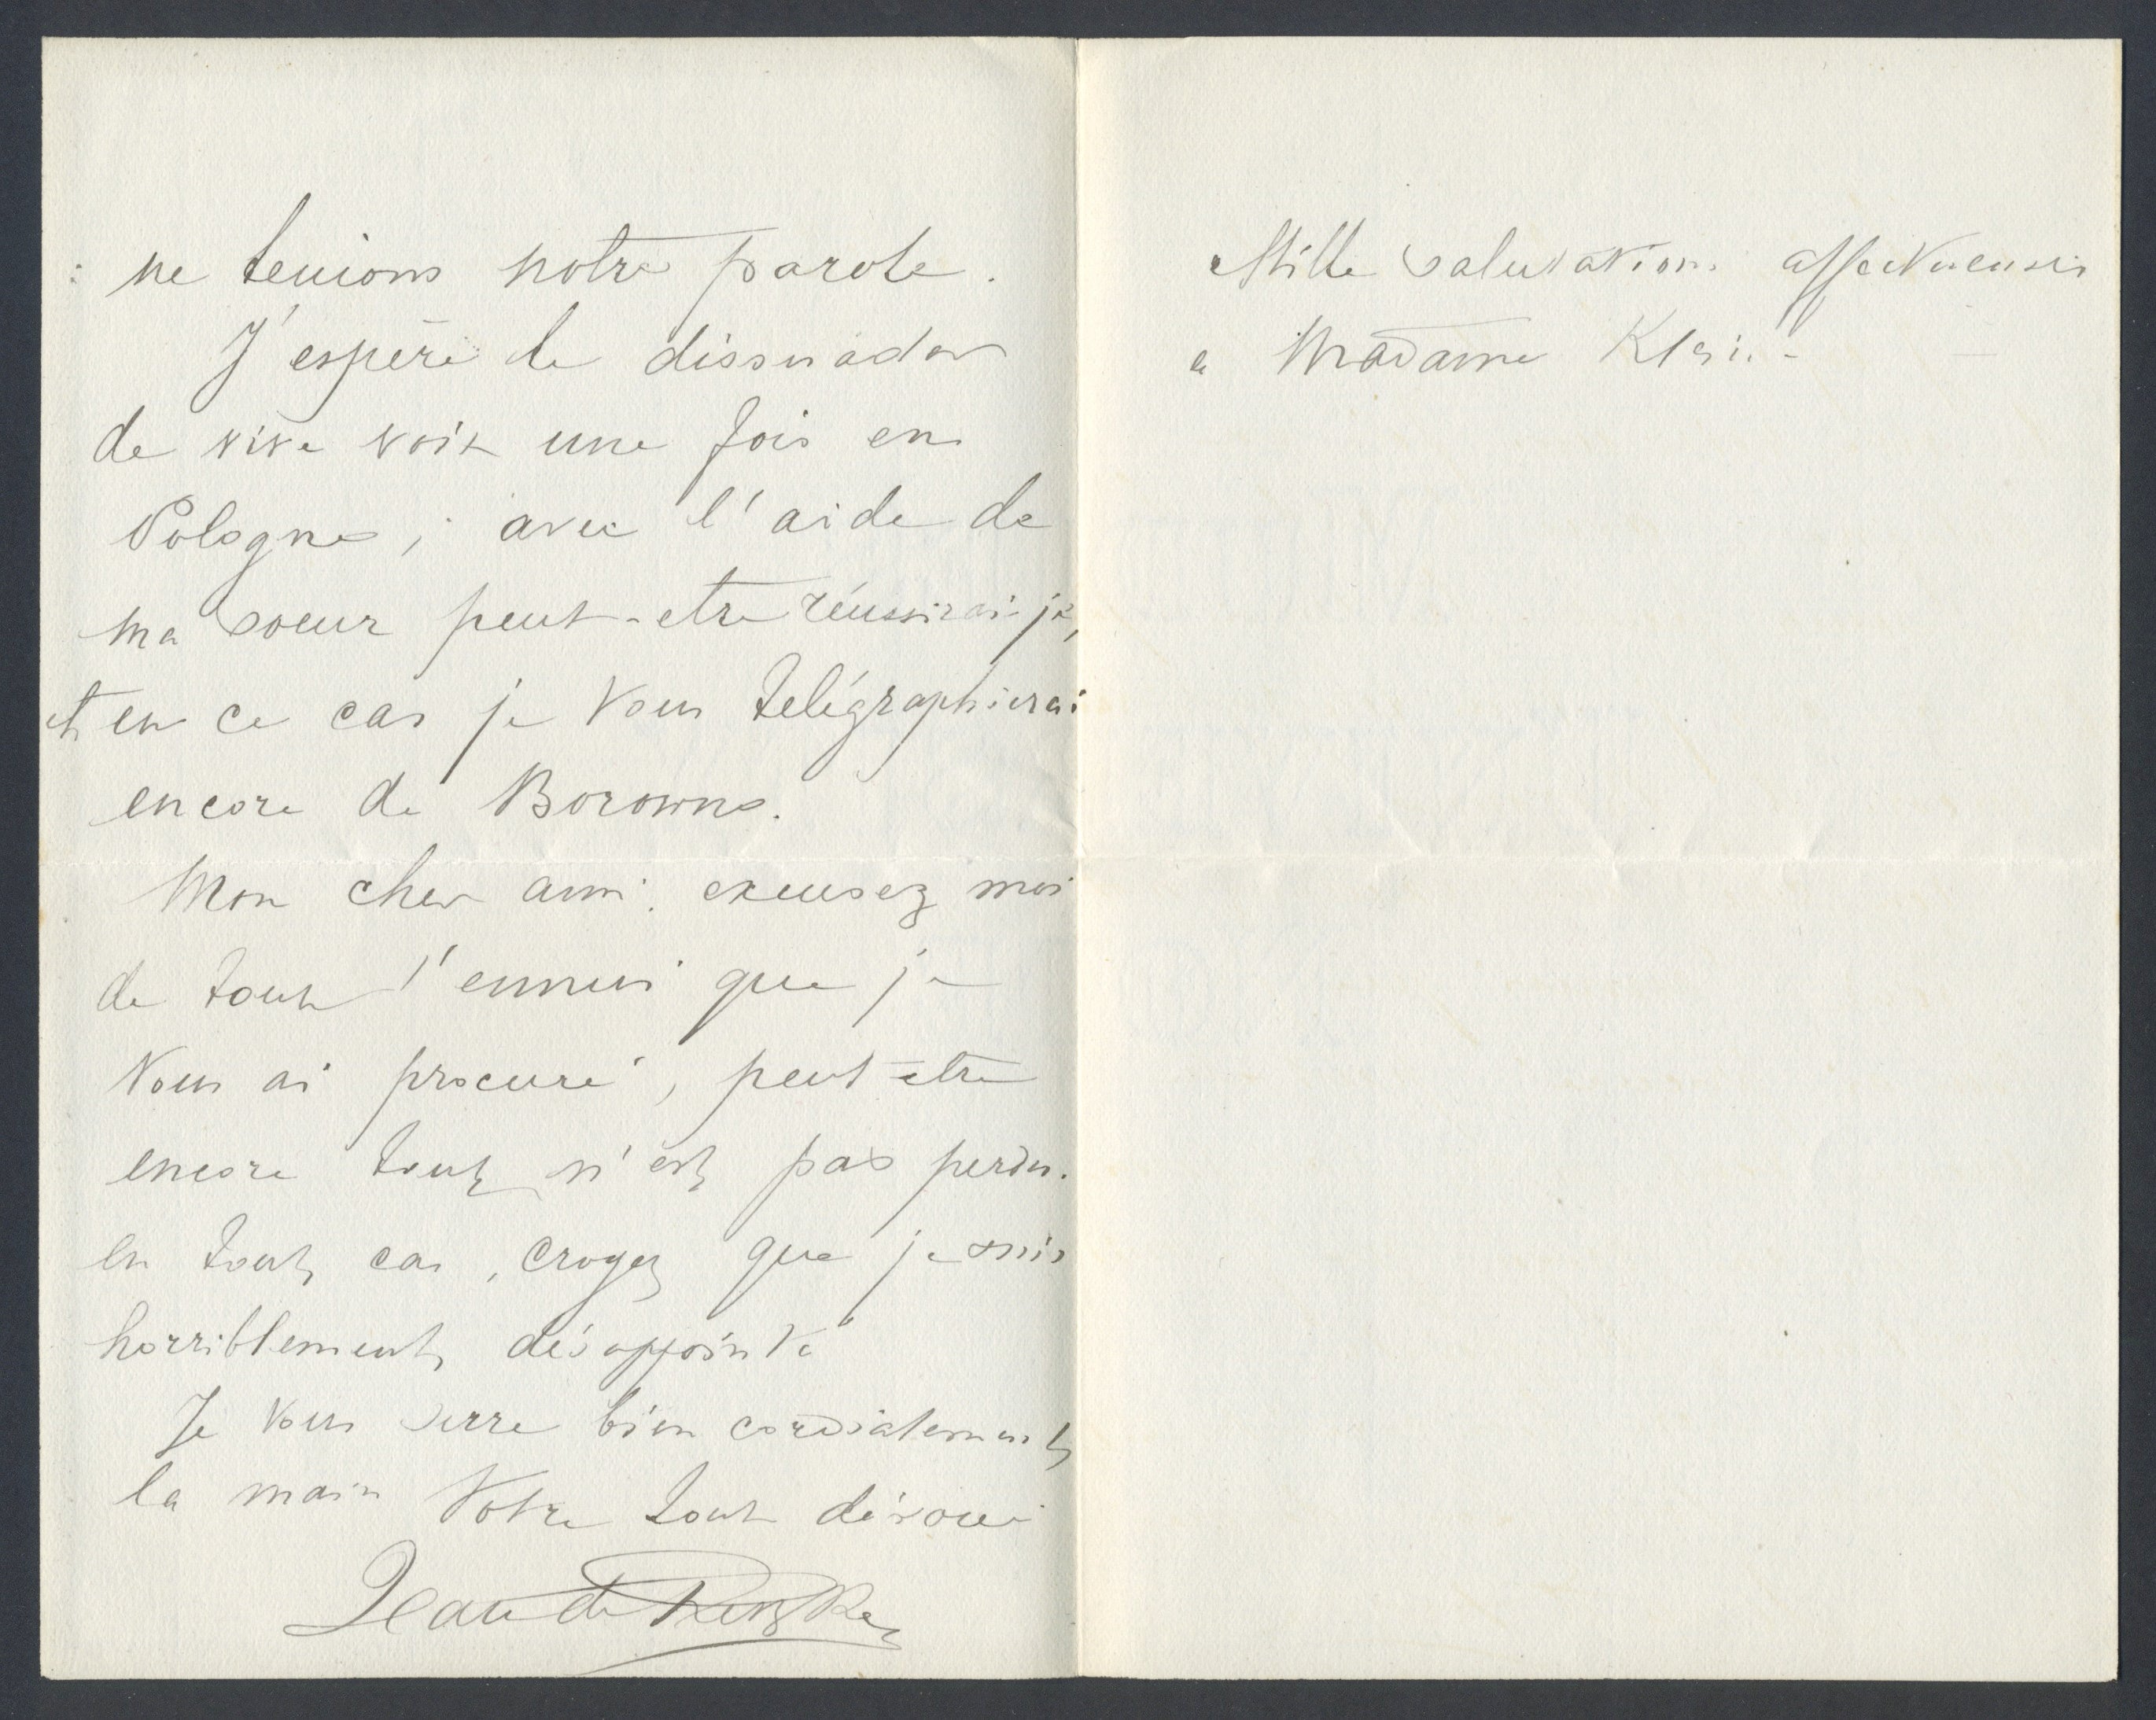 ne tenions notre parole.
J'espère le dissuader
de vive voix une fois en
Pologne, avec l'aide de
ma soeur peut-etre réussirai-je,
et en ce cas je vous telégraphierai
encore de Borowno.
Mon cher ami, excusez moi
de tout l'ennui que je
vous ai procuré, peut-etre
encore tout n'est pas perdu.
en tout cas, croyez que je suis
horriblement désappointé
Je vous serre bien cordialement
la main Votre tout dévoué
Jean de Reszke
Mille salutations affectueuses
a Madame